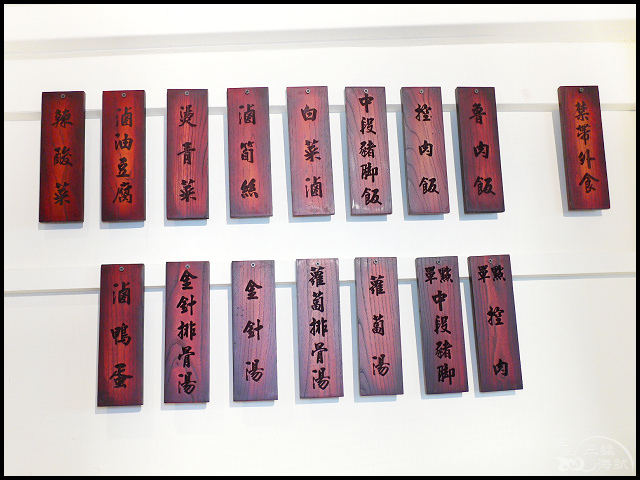 禁帶外食
魯肉飯
控肉飯
中段豬腳飯
白菜滷
滷筍絲
燙青菜
滷油豆腐
辣酸菜
單點控肉
單點中段豬腳
蘿蔔湯
蘿蔔排骨湯
金針湯
金針排骨湯
滷鴨蛋